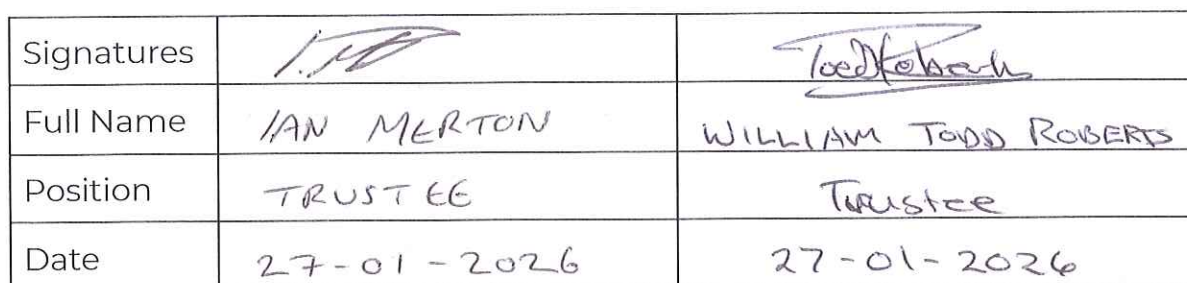 Signatures
Full Name IAN MERTON WILLIAM TODD ROBERTS
Position TRUSTEE Trustee
Date 27-01-2026 27-01-2026